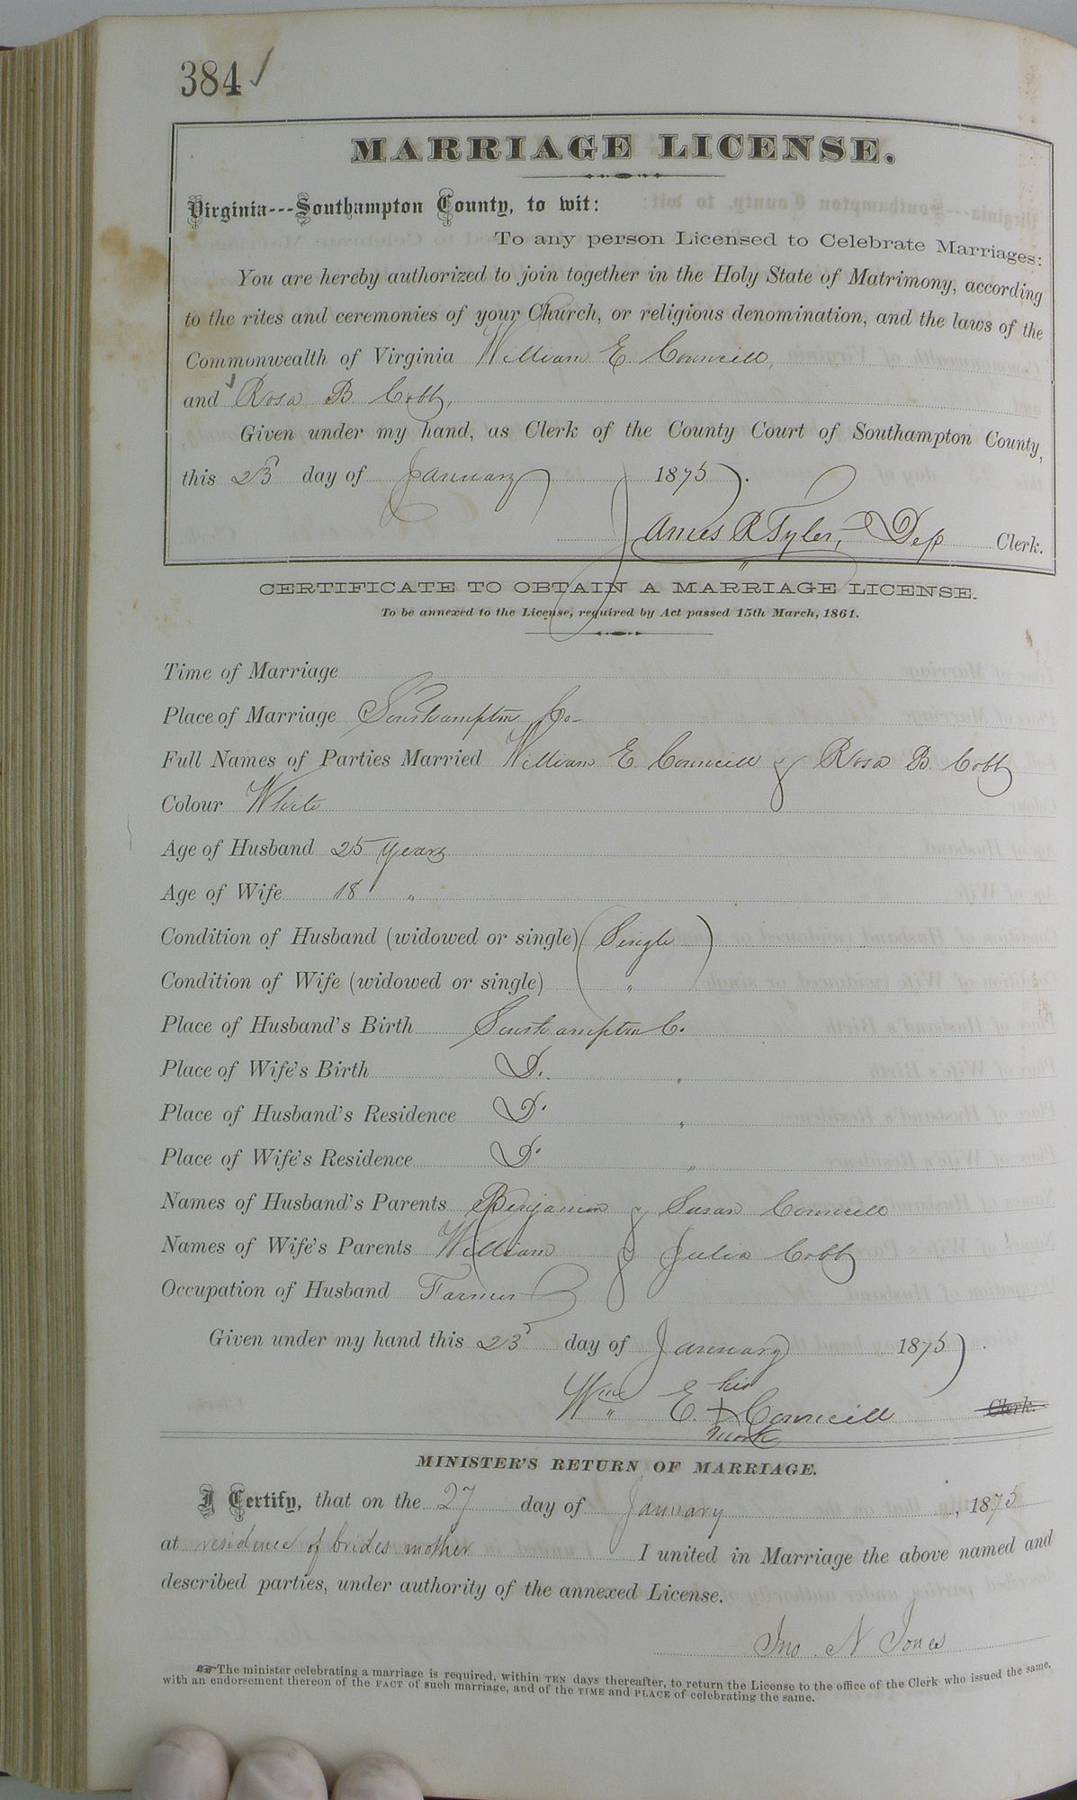 384 ✓
MARRIAGE LICENSE.
Virginia---Southampton County, to wit:
To any person Licensed to Celebrate Marriages:
You are hereby authorized to join together in the Holy State of Matrimony, according
to the rites and ceremonies of your Church, or religious denomination, and the laws of the
Commonwealth of Virginia William E. Councill,
and Rosa B. Cobb,
Given under my hand, as Clerk of the County Court of Southampton County,
this 23 day of January 1875.
James R Tyler, Dep Clerk.
CERTIFICATE TO OBTAIN A MARRIAGE LICENSE.
To be annexed to the License, required by Act passed 15th March, 1861.
Time of Marriage
Place of Marriage Southampton Co
Full Names of Parties Married William E. Councill & Rosa B. Cobb
Colour White
Age of Husband 25 years
Age of Wife 18 "
Condition of Husband (widowed or single) (Single)
Condition of Wife (widowed or single) "
Place of Husband's Birth Southampton C.
Place of Wife's Birth D. "
Place of Husband's Residence D. "
Place of Wife's Residence D. "
Names of Husband's Parents Benjamin & Susan Councill
Names of Wife's Parents William & Julia Cobb
Occupation of Husband Farmer
Given under my hand this 23 day of January 1875
his
Wm E. + Councill Clerk.
mark
MINISTER'S RETURN OF MARRIAGE.
I Certify, that on the 27 day of January, 1875
at residence of brides mother I united in Marriage the above named and
described parties, under authority of the annexed License.
Jno. N Jones
☞ The minister celebrating a marriage is required, within TEN days thereafter, to return the License to the office of the Clerk who issued the same,
with an endorsement thereon of the FACT of such marriage, and of the TIME and PLACE of celebrating the same.